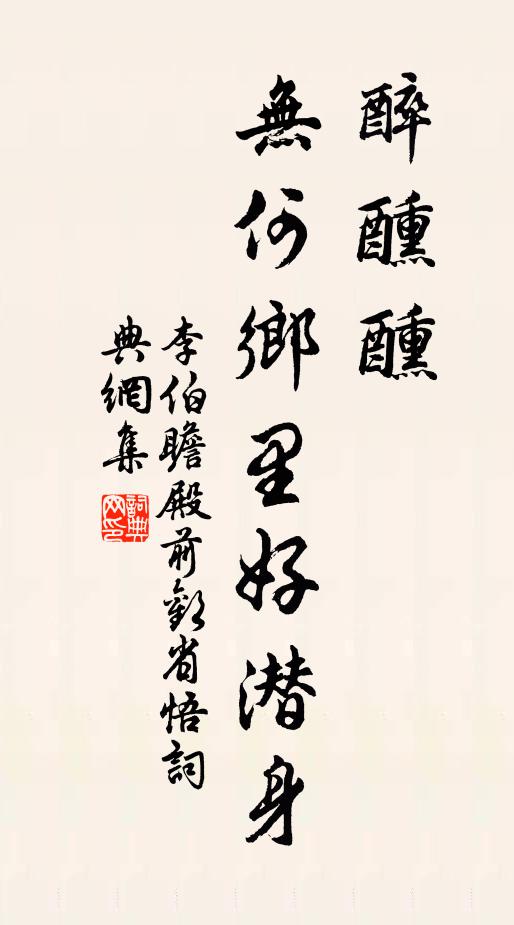 醉醺醺
無何鄉里好潛身
李伯瞻殿前歡省悟詞
典網集
詞典網印